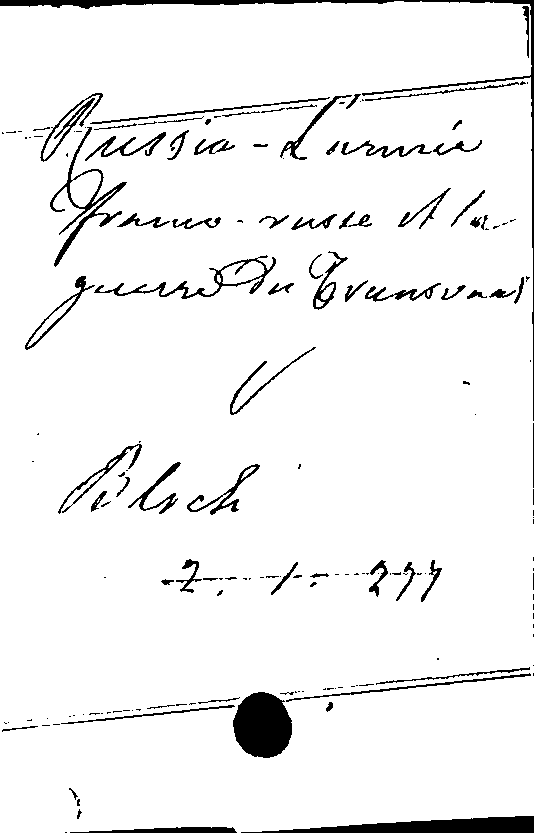 Russia - L'armée
franco-russe et la
guerre du Transvaal
Bloch
2. 1. 277